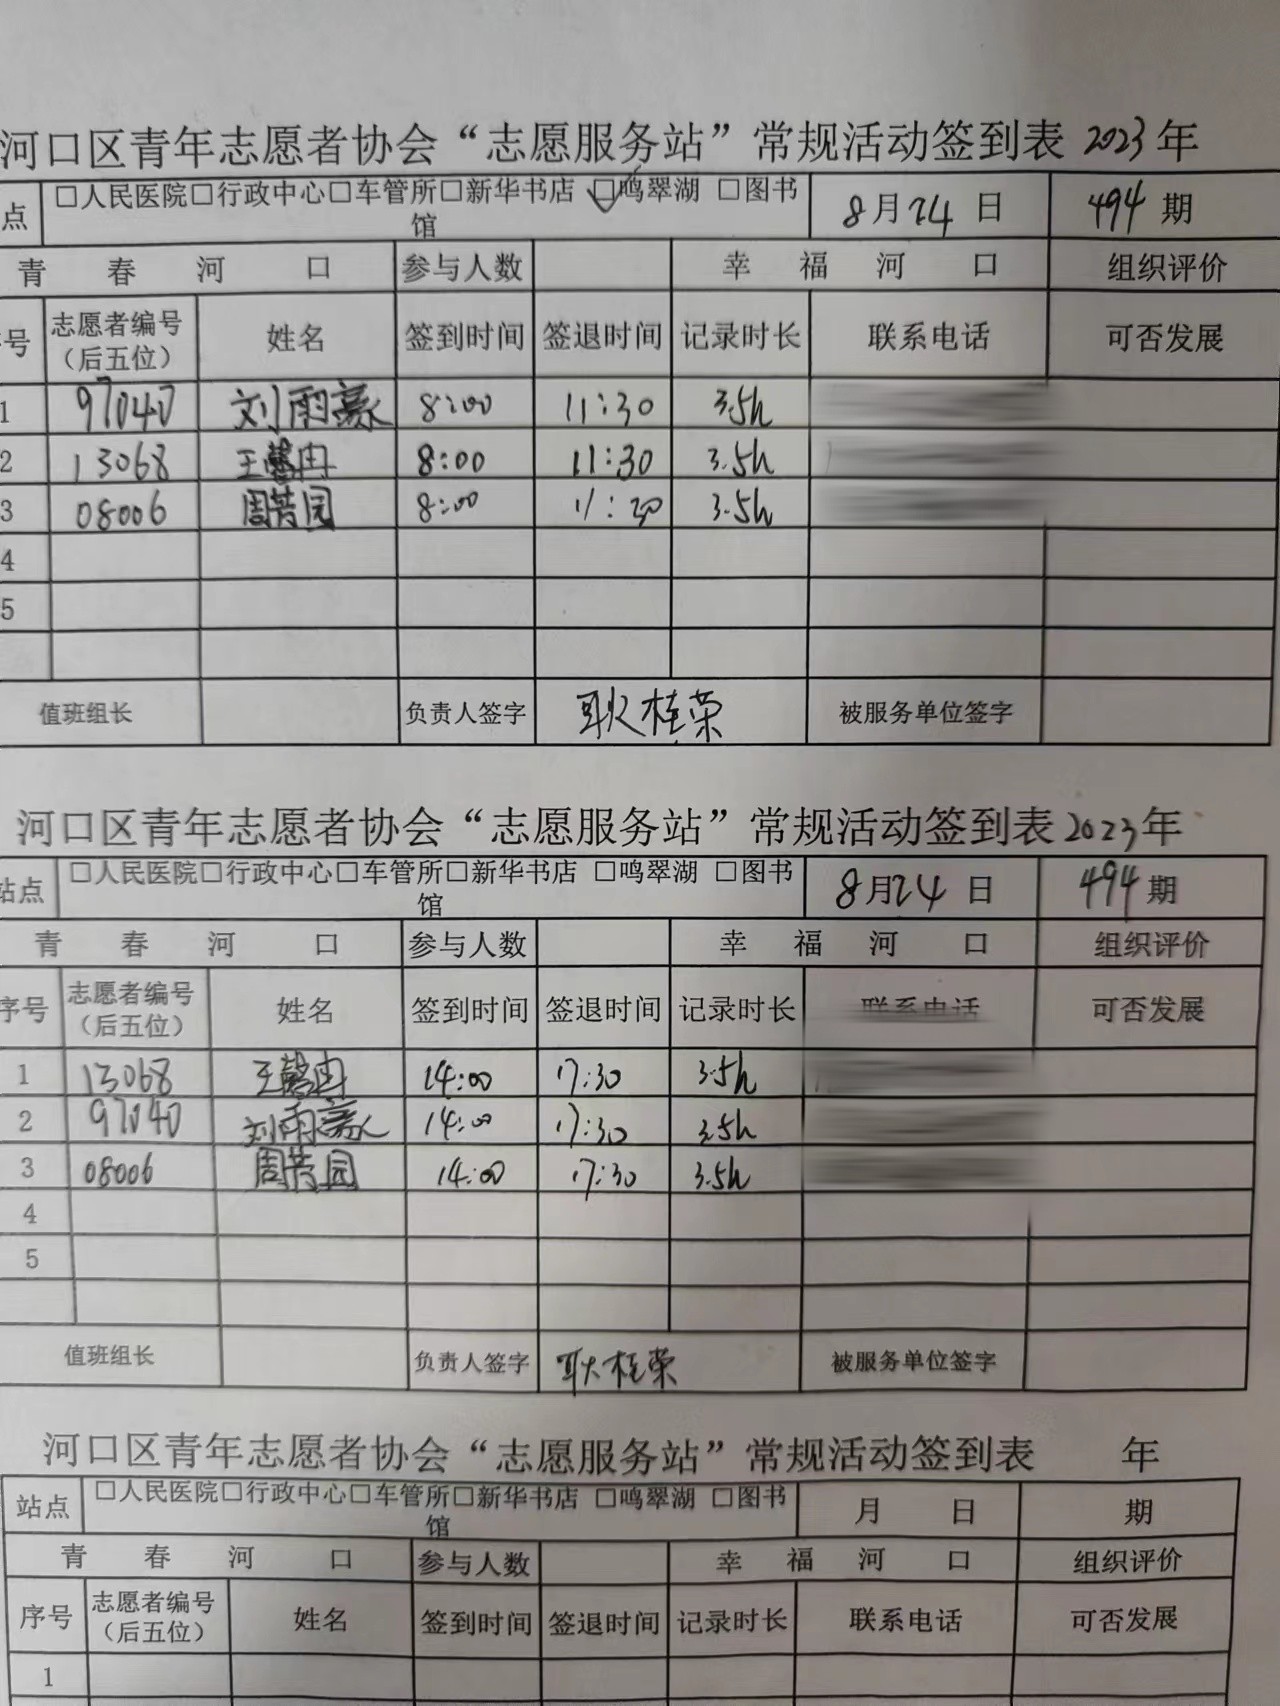 河口区青年志愿者协会“志愿服务站”常规活动签到表 2023 年
点 □人民医院□行政中心□车管所□新华书店 ☑鸣翠湖 □图书馆 8月24日 494期
青春河口 参与人数 幸福河口 组织评价
号 志愿者编号（后五位） 姓名 签到时间 签退时间 记录时长 联系电话 可否发展
1 97040 刘雨豪 8:00 11:30 3.5h
2 13068 王馨冉 8:00 11:30 3.5h
3 08006 周芳园 8:00 11:30 3.5h
4
5
值班组长 负责人签字 耿桂荣 被服务单位签字
河口区青年志愿者协会“志愿服务站”常规活动签到表2023年
站点 □人民医院□行政中心□车管所□新华书店 □鸣翠湖 □图书馆 8月24日 494期
青春河口 参与人数 幸福河口 组织评价
序号 志愿者编号（后五位） 姓名 签到时间 签退时间 记录时长 联系电话 可否发展
1 13068 王馨冉 14:00 17:30 3.5h
2 97040 刘雨豪 14:00 17:30 3.5h
3 08006 周芳园 14:00 17:30 3.5h
4
5
值班组长 负责人签字 耿桂荣 被服务单位签字
河口区青年志愿者协会“志愿服务站”常规活动签到表 年
站点 □人民医院□行政中心□车管所□新华书店 □鸣翠湖 □图书馆 月 日 期
青春河口 参与人数 幸福河口 组织评价
序号 志愿者编号（后五位） 姓名 签到时间 签退时间 记录时长 联系电话 可否发展
1